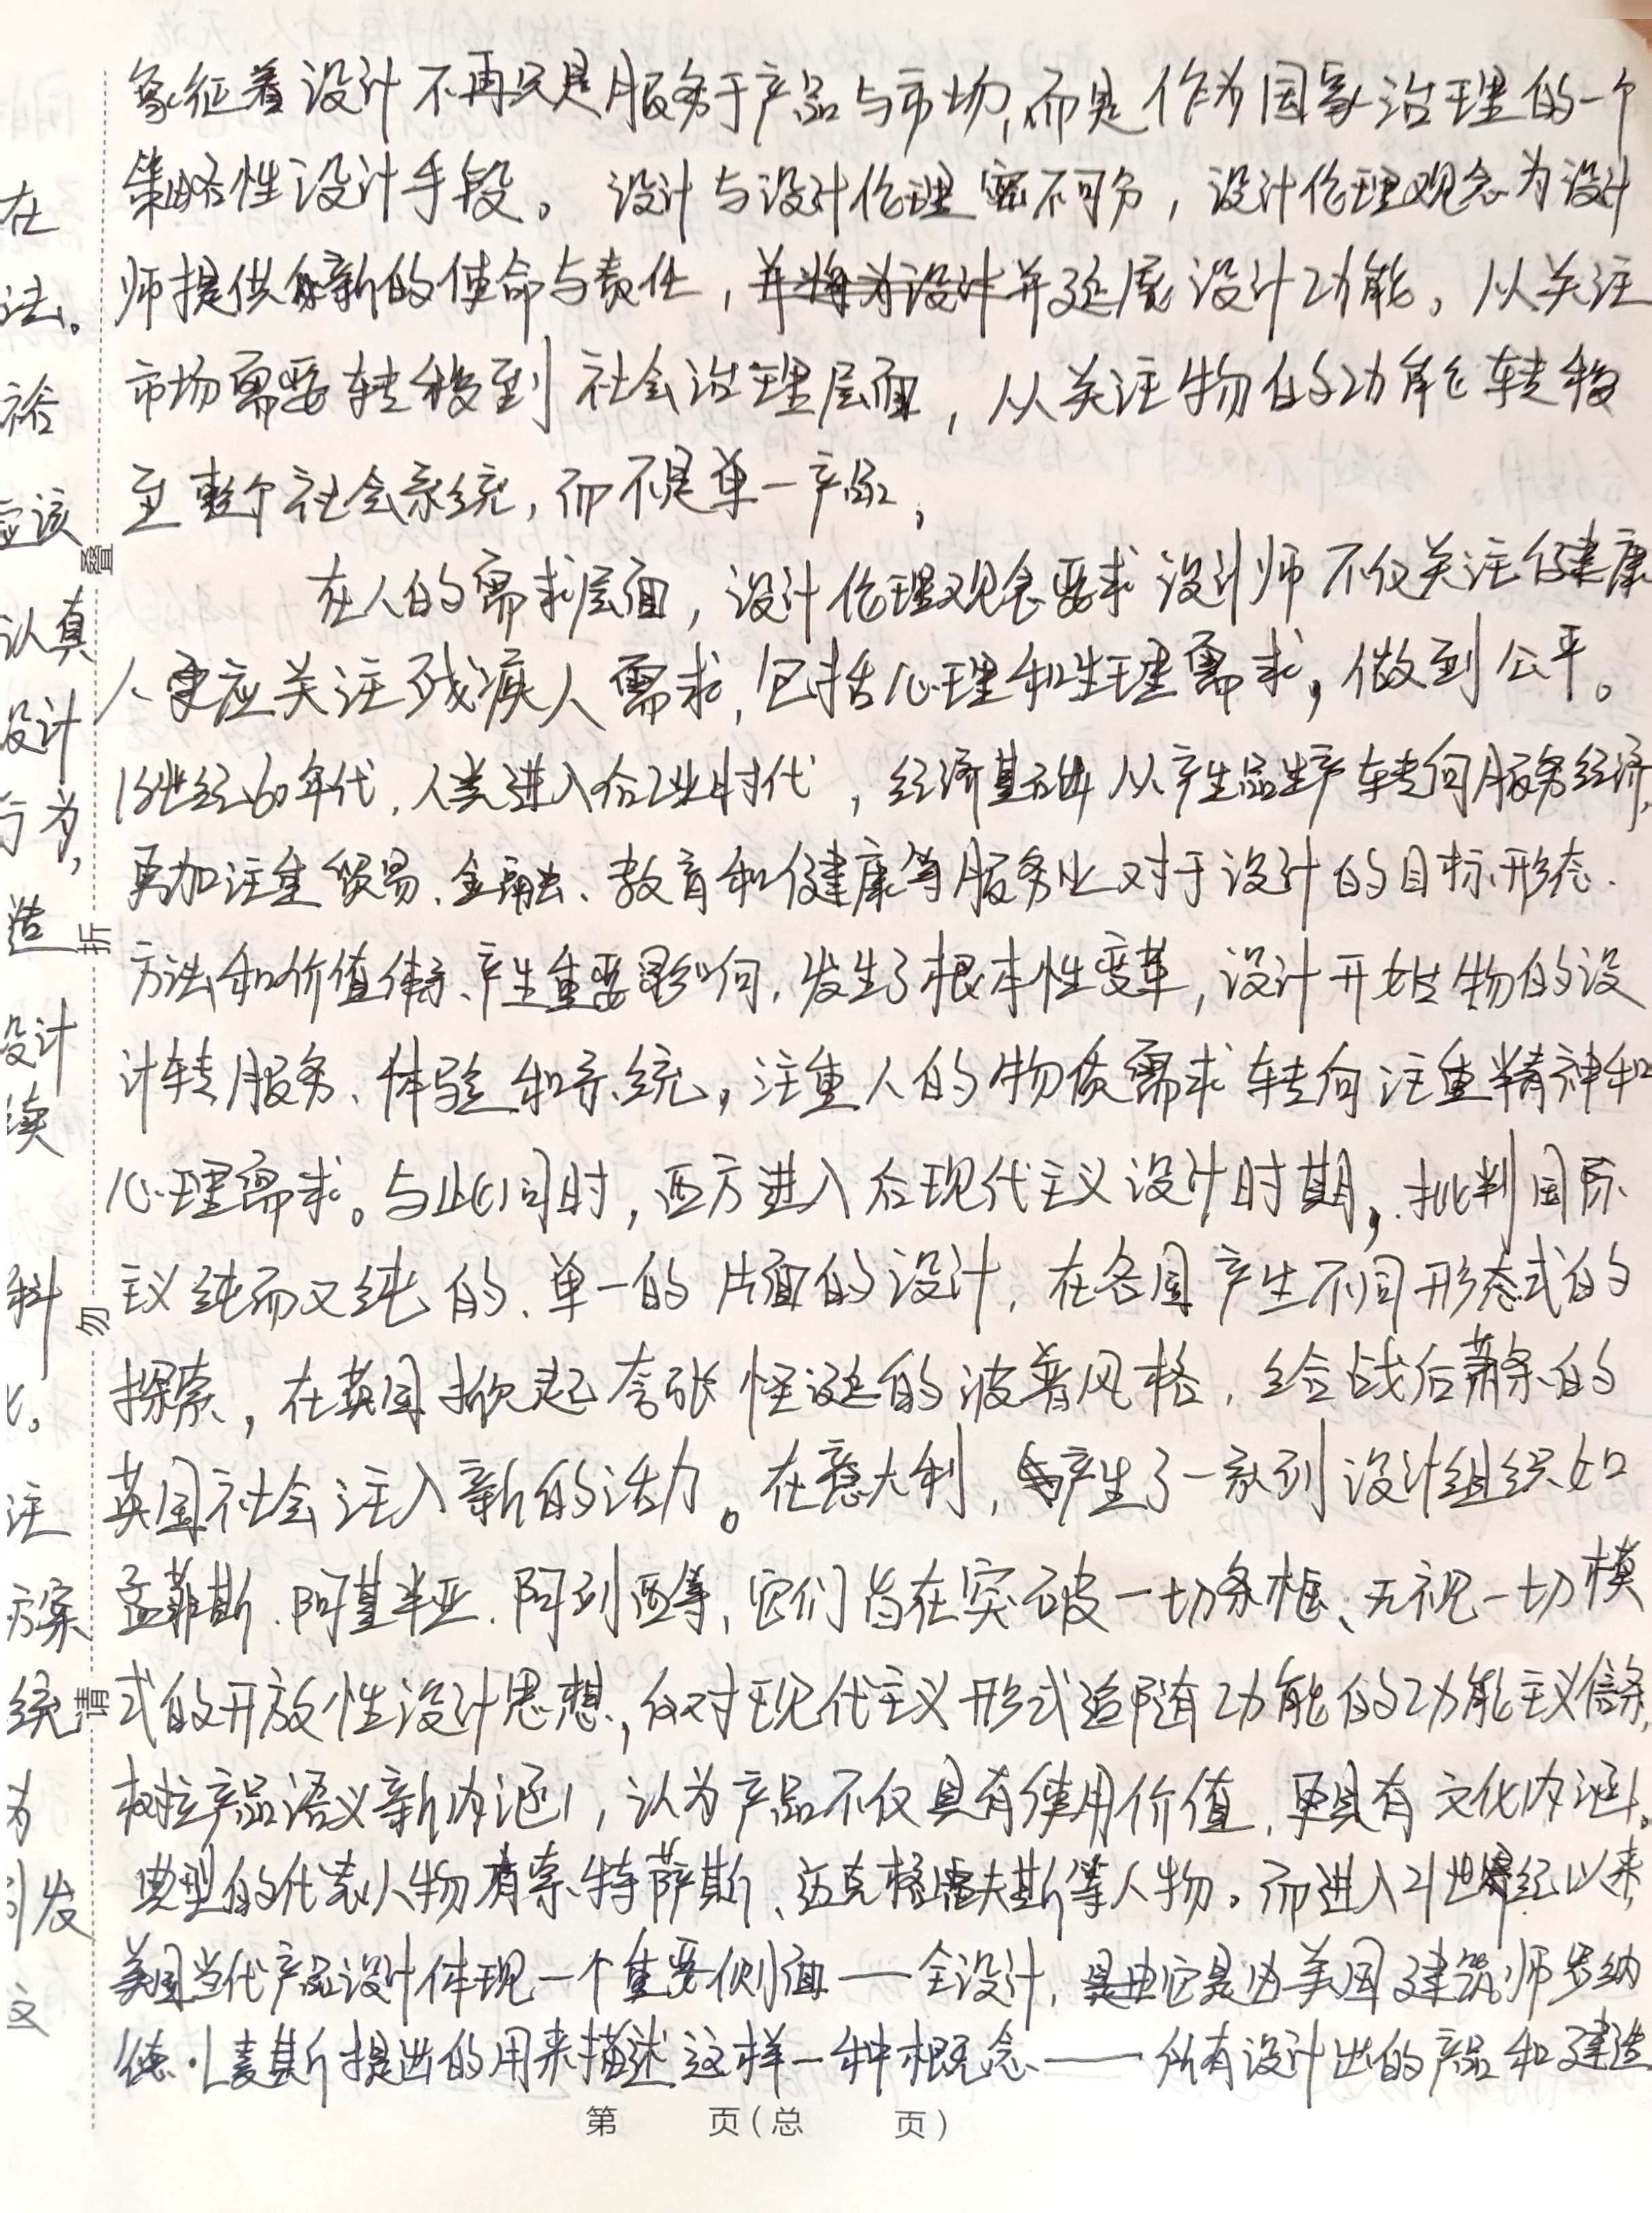 象征着设计不再只是服务于产品与市场,而是作为国家治理的一个
策略性设计手段。设计与设计伦理密不可分,设计伦理观念为设计
师提供新的使命与责任,并将为设计并延展设计功能。从关注
市场需要转移到社会治理层面,从关注物的功能转移
至整个社会系统,而不是单一产品,
在人的需求层面,设计伦理观念要求设计师不仅关注健康
人更应关注残疾人需求,包括心理和生理需求,做到公平。
世纪60年代,人类进入后工业时代,经济基础从产生品生产转向服务经济,
更加注重贸易、金融、教育和健康等服务业对于设计的目标、形态、
方法和价值体系、产生重要影响,发生了根本性变革,设计开始物的设
计转服务、体验和系统,注重人的物质需求转向注重精神和
心理需求。与此同时,西方进入后现代主义设计时期,批判国际
主义纯而又纯的、单一的片面的设计,在各国产生不同形态式的
探索,在英国掀起夸张怪诞的波普风格,给战后萧条的
英国社会注入新的活力。在意大利,产生了一系列设计组织如
孟菲斯、阿基米亚、阿列西等,它们旨在突破一切条框、无视一切模
式的开放性设计思想,反对现代主义形式追随功能的功能主义信条,
树立产品语义新内涵,认为产品不仅具有使用价值,更具有文化内涵。
典型的代表人物有索特萨斯、迈克格雷夫斯等人物。而进入21世纪以来,
美国当代产品设计体现一个重要侧面——全设计,是由它是由美国建筑师罗纳
德·L麦斯提出的用来描述这样一种概念——所有设计出的产品和建造
第 页(总 页)
在
法。
裕
应该
认真
设计
行为,
造
设计
续
料
化。
注
方案
统
为
引发
文
叠
折
勿
请